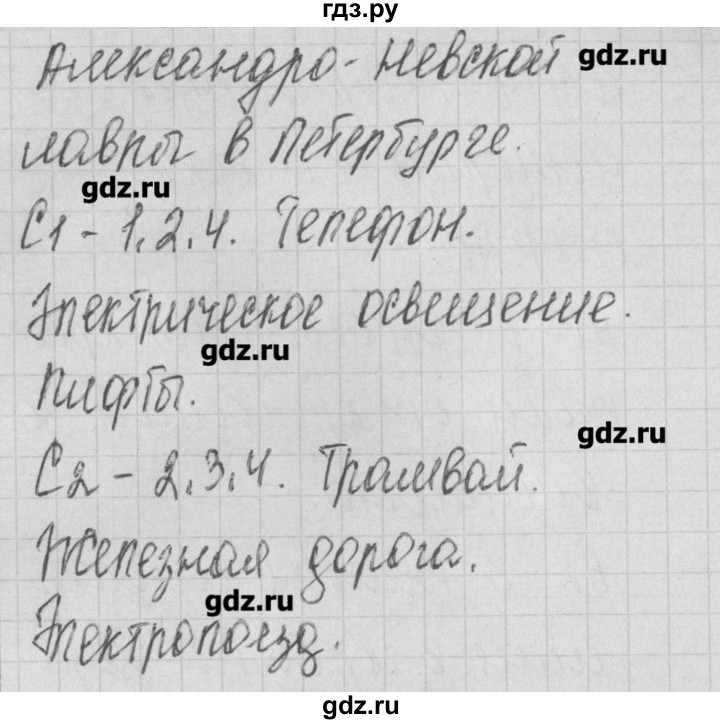 гдз.ру
Александро-Невской
gdz.ru
лавры в Петербурге.
gdz.ru
С1 - 1,2,4. Телефон.
Электрическое освещение.
gdz.ru
Лифты.
gdz.ru
С2 - 2,3,4. Трамвай.
Железная дорога.
gdz.ru
Электропоезд.
gdz.ru